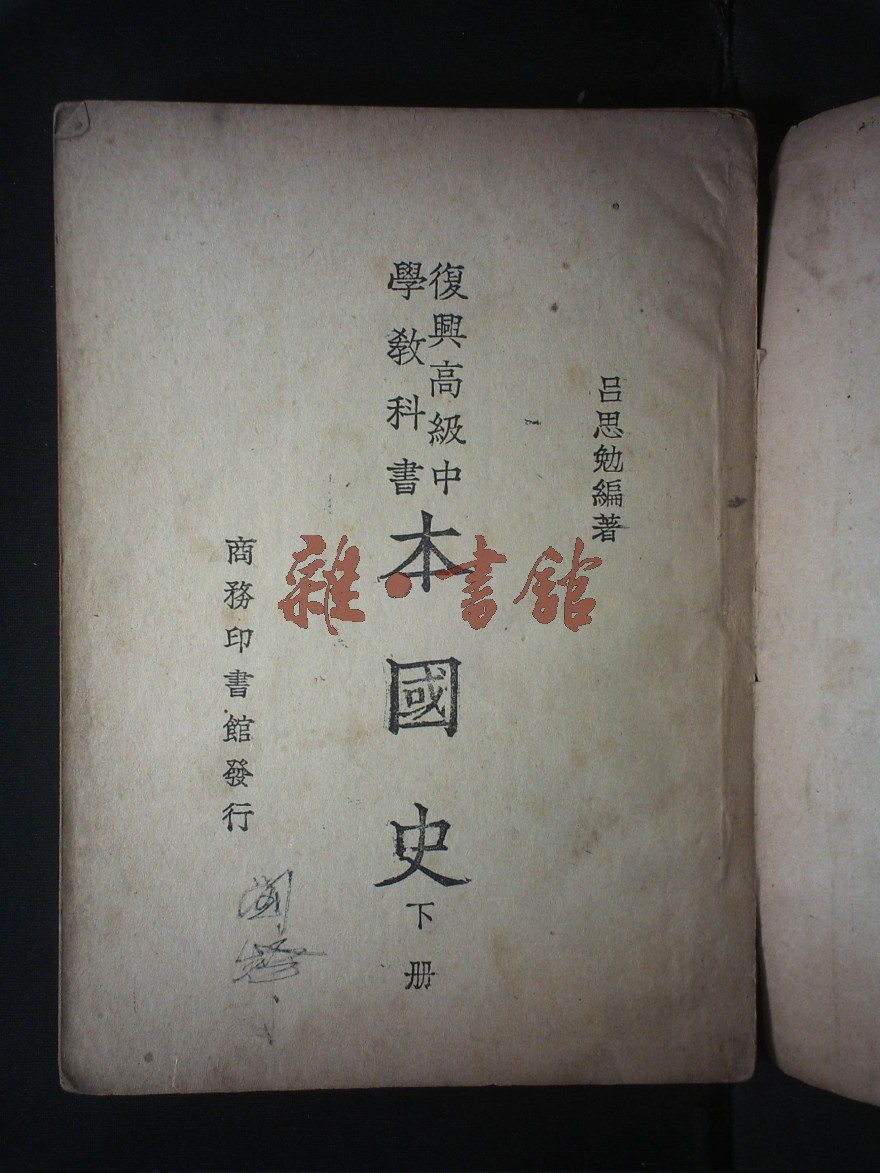 吕思勉編著
復興高級中
學教科書
本國史
下册
商務印書館發行
雜·書舘